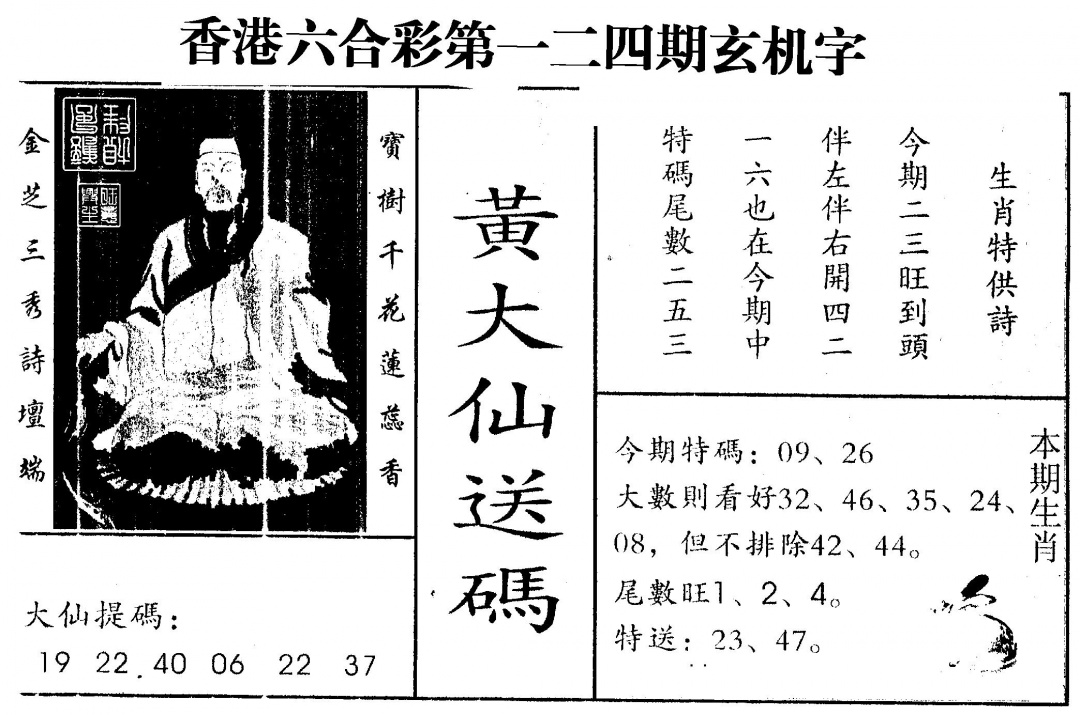 香港六合彩第一二四期玄机字
寶樹千花蓮蕊香
金芝三秀詩壇端
黃大仙送碼
生肖特供詩
今期二三旺到頭
伴左伴右開四二
一六也在今期中
特碼尾數二五三
本期生肖
今期特碼：09、26
大數則看好32、46、35、24、
08，但不排除42、44。
尾數旺1、2、4。
特送：23、47。
大仙提碼：
19 22.40 06 22 37